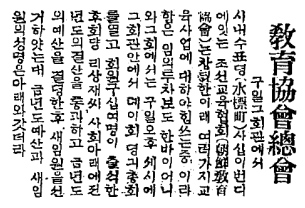 敎育協會總會
구일그회관에서
시내수표뎡(水標町)사십이번디
에잇는 조선교육협회(朝鮮敎育
協會)는창립한이래 여러가지교
육사업에 대하야힘쓰는중 이라
함은 임의루차보도한바이어니
와그회에서는구일오후 세시에
그회관안에서 뎨이회 뎡긔총회
를열고 회원구십여명이 출석한
후회당 리상재씨 사회아래에전
년도의결산을 통과하고 금년도
의예산을 결뎡한후 새임원을선
거하얏는대 금년도예산과 새임
원의청명은아래와갓더라